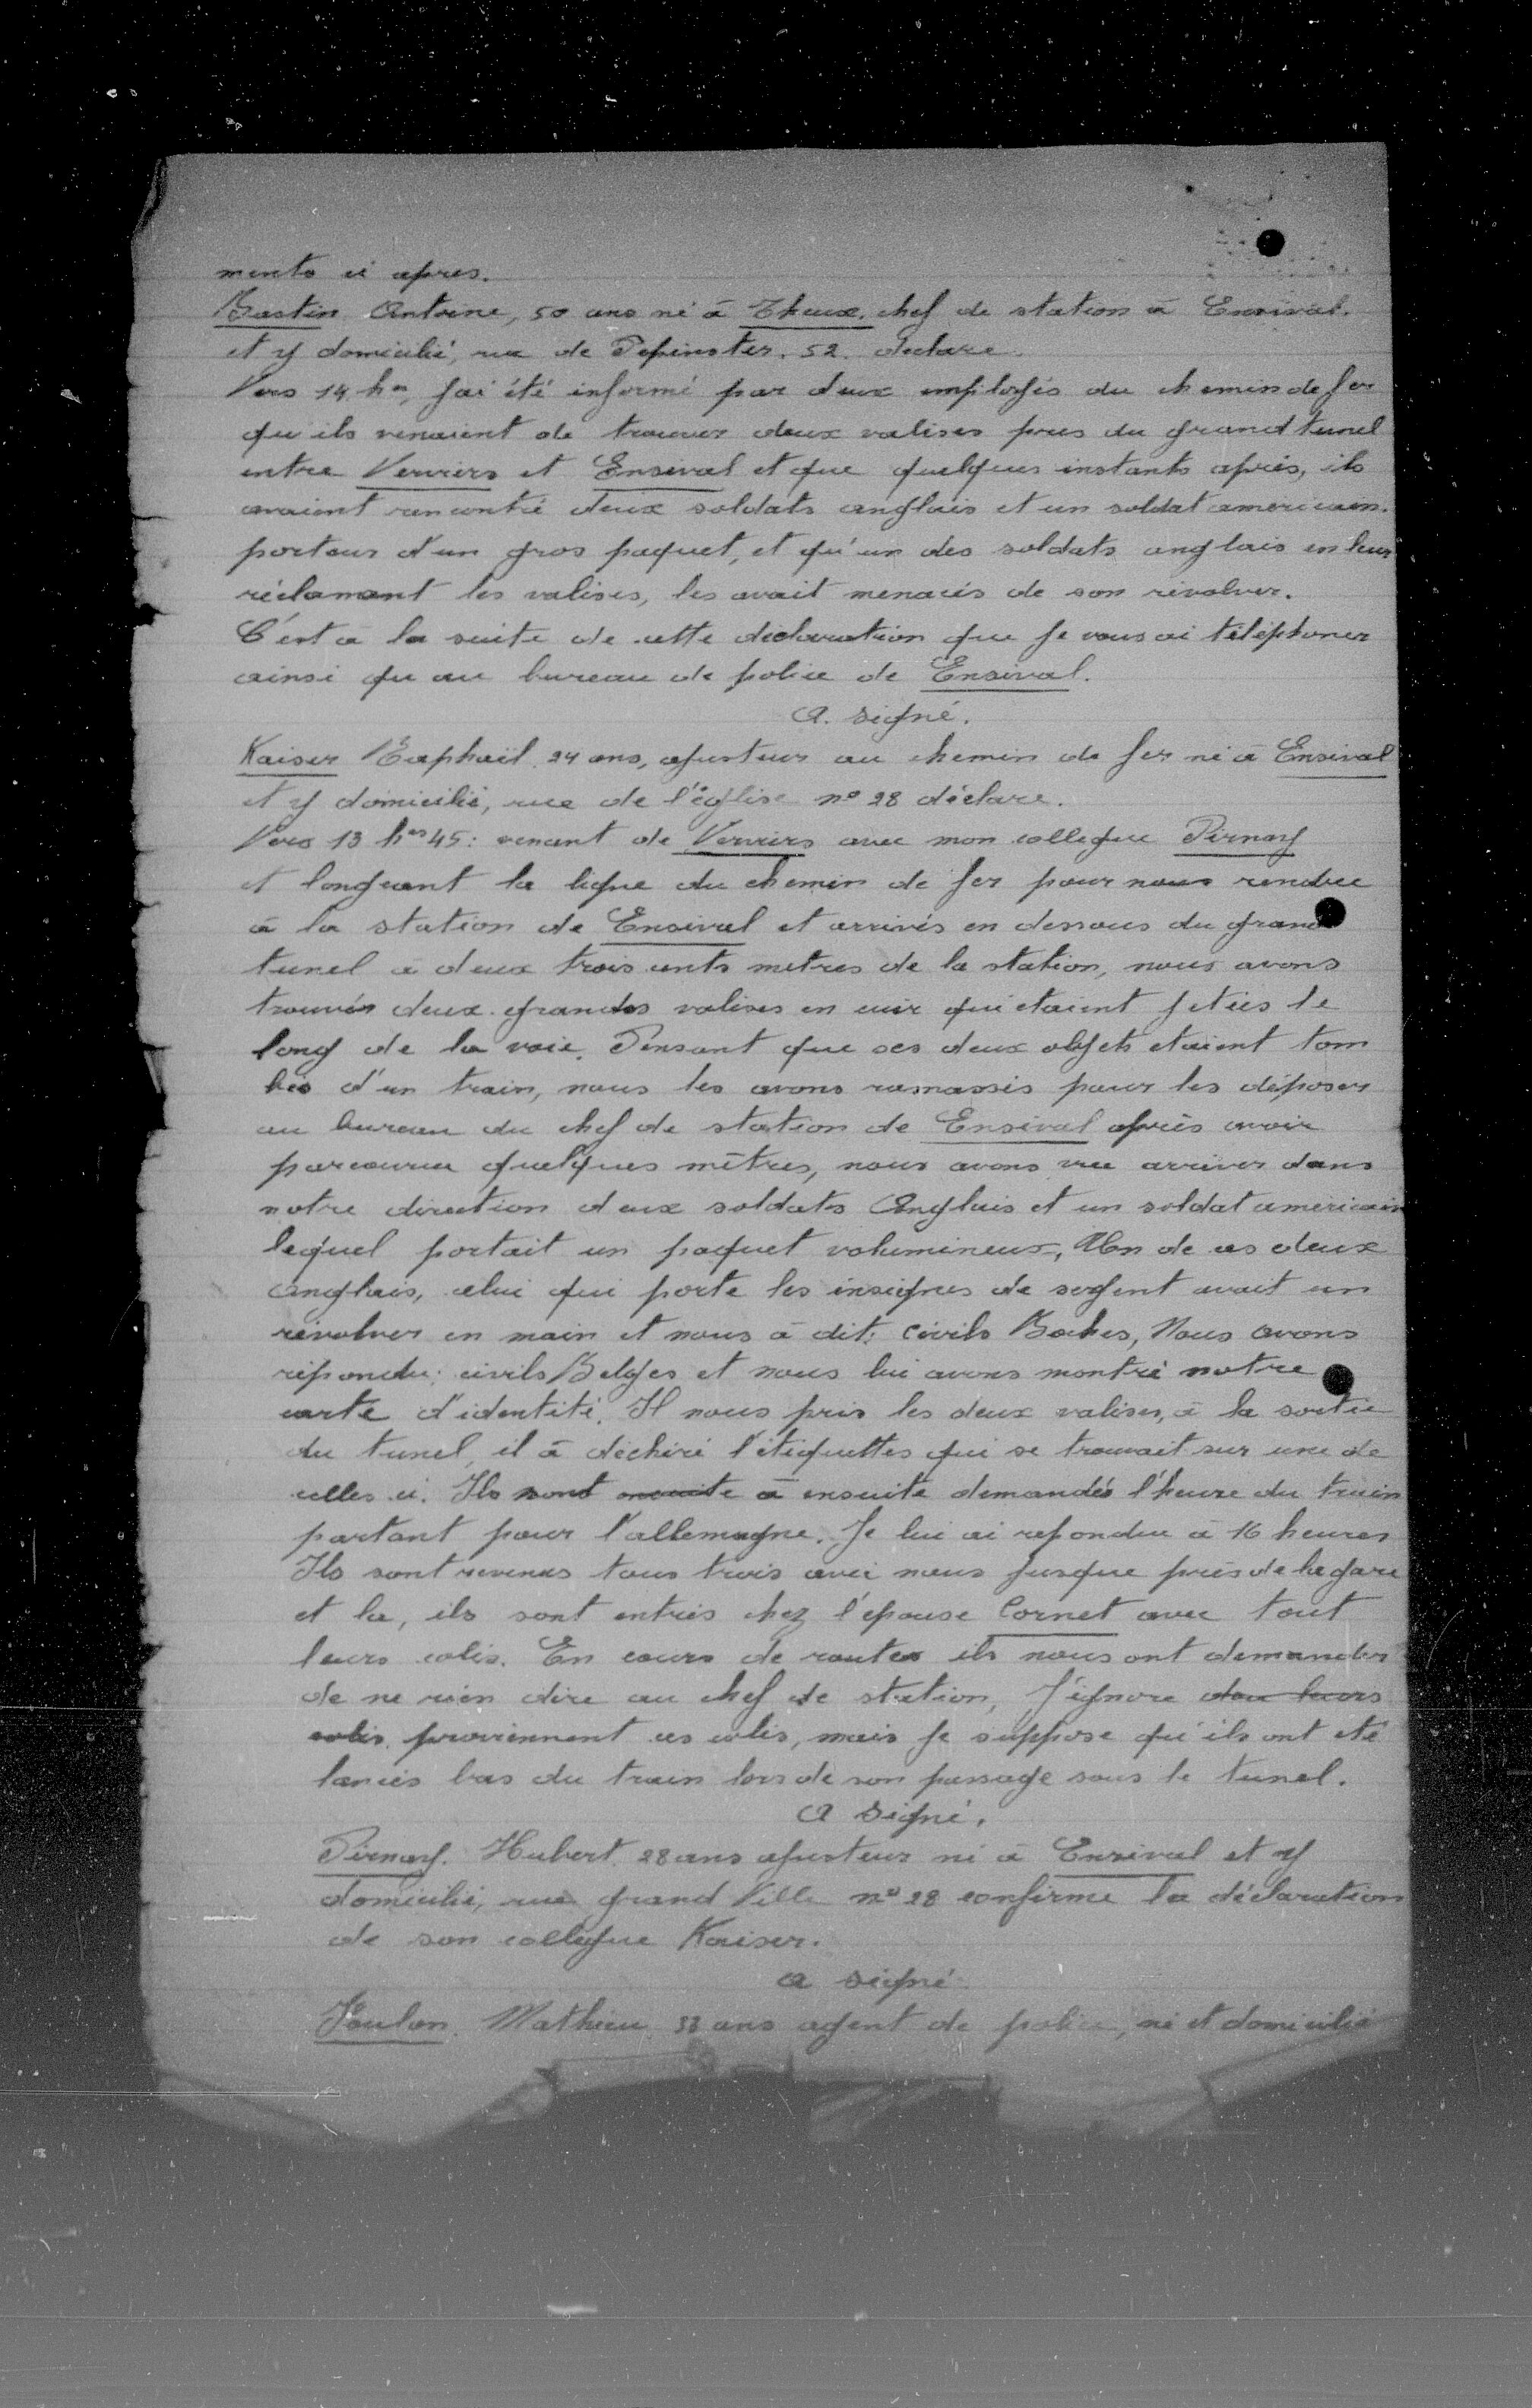 ments ci apres.
Bastin Antoine, 50 ans né à Theux. chef de station à Ensival.
et y domicilié, rue de Pepinster. 52. declare.
Vers 14 hes, j'ai été informé par deux employés du chemin de fer
qu'ils venaient de trouver deux valises pres du grand tunel
entre Verviers et Ensival et que quelques instants après, ils
avaient rencontré deux soldats anglais et un soldat americain.
porteur d'un gros paquet, et qu'un des soldats anglais en leur
réclamant les valises, les avait menacés de son révolver.
C'est à la suite de cette déclaration que je vous ai téléphoner
ainsi qu'au bureau de police de Ensival.
A. signé.
Kaiser Raphaël. 24 ans, ajusteur au chemin de fer né à Ensival
et y domicilié, rue de l'église no 28 déclare.
Vers 13 hes 45: venant de Verviers avec mon collegue Pirnay
et longeant la ligne du chemin de fer pour nous rendre
à la station de Ensival et arrivés en dessous du grand
tunel à deux trois cents metres de la station, nous avons
trouvés deux grandes valises en cuir qui etaient jetées le
long de la voie. Pensant que ses deux objets etaient tom
bés d'un train, nous les avons ramassés pour les déposer
au bureau du chef de station de Ensival après avoir
parcourue quelques mètres, nous avons vue arriver dans
notre direction deux soldats Anglais et un soldat americain
lequel portait un paquet volumineux, Un de ces deux
anglais, celui qui porte les insignes de sergent avait un
révolver en main et nous à dit: civils Boches, Nous avons
répondu: civils Belges et nous lui avons montré notre
carte d'identité. Il nous pris les deux valises, à la sortie
du tunel, il à déchiré l'étiquettes qui se trouvait sur une de
celles ci. Ils sont ensuite à ensuite demandés l'heure du train
partant pour l'allemagne. Je lui ai repondu à 16 heures
Ils sont revenus tous trois avec nous jusque près de la gare
et la, ils sont entrés chez l'epouse Cornet avec tout
leurs colis. En cours de routes ils nous ont demander
de ne rien dire au chef de station, J'ignore dou leurs
colis proviennent ces colis, mais je suppose qu'ils ont eté
lancés bas du train lors de son passage sous le tunel.
A signé.
Pirnay. Hubert. 28 ans ajusteur né à Ensival et y
domicilié, rue grand Ville no 28 confirme la déclaration
de son collegue Kaiser.
a signé
Mathieu 33 ans agent de police, né et domicilié